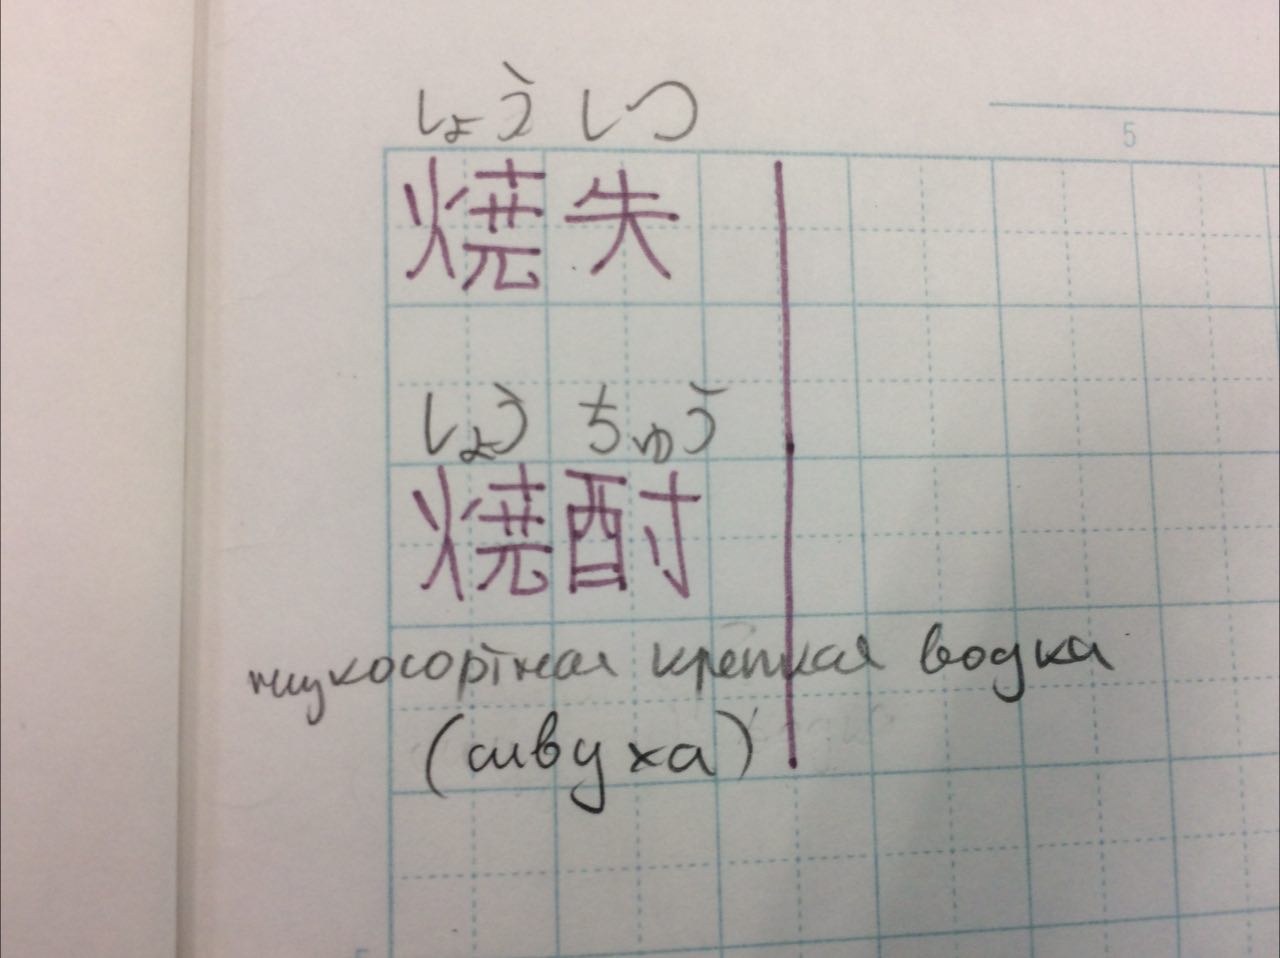 5
しょう しつ
焼失
しょう ちゅう
焼酎
низкосортная крепкая водка
(сивуха)